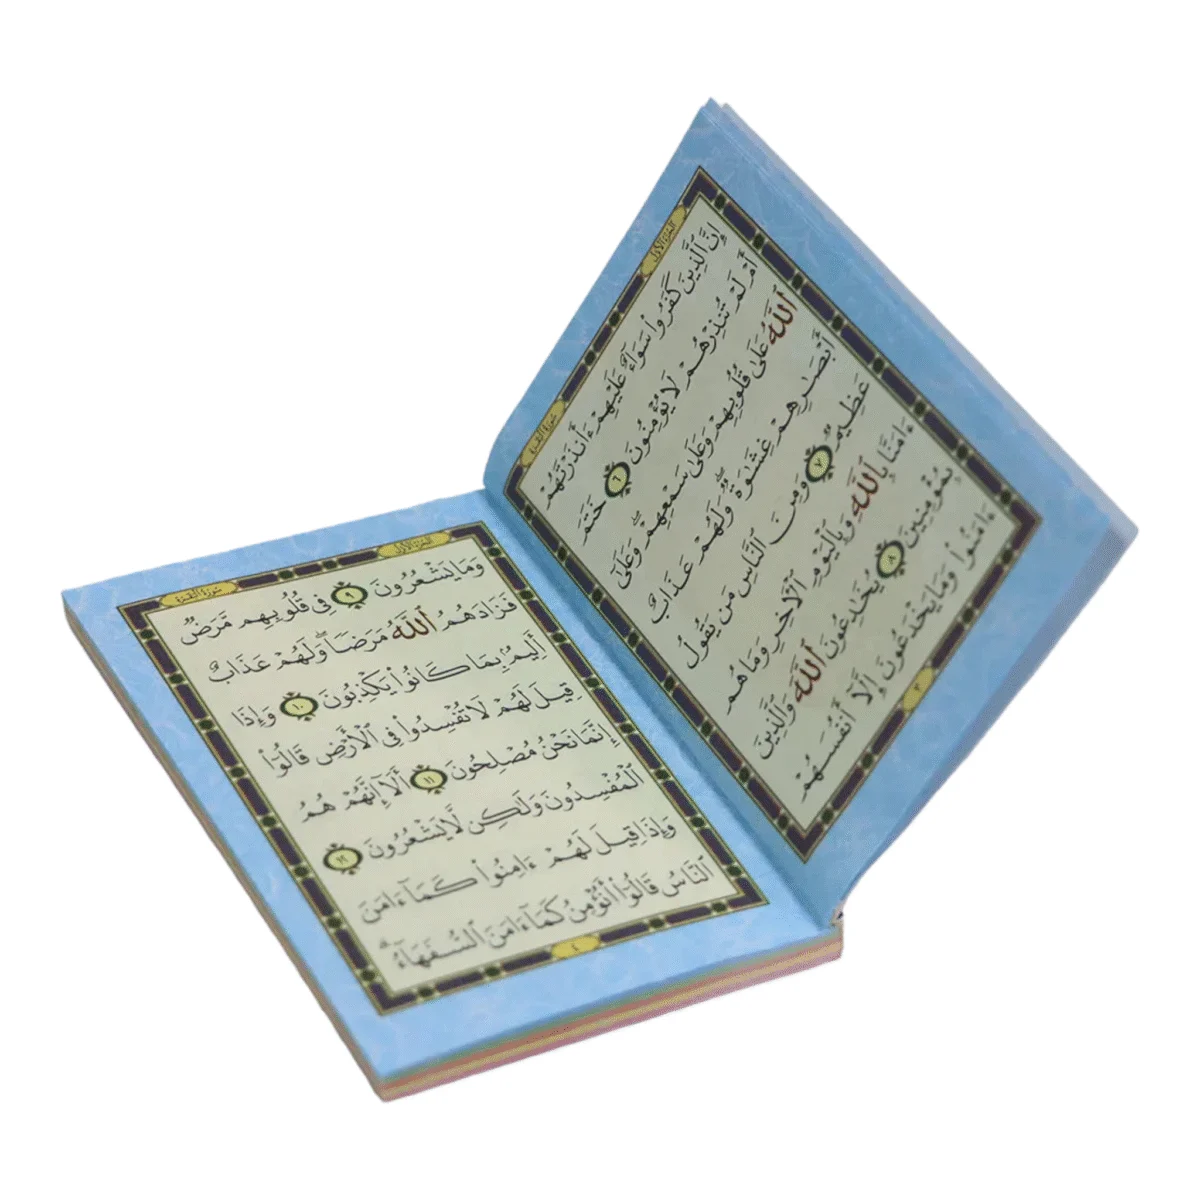 الجزء الأول
سورة البقرة
إِنَّ ٱلَّذِينَ كَفَرُوا۟ سَوَآءٌ عَلَيْهِمْ ءَأَنذَرْتَهُمْ
أَمْ لَمْ تُنذِرْهُمْ لَا يُؤْمِنُونَ ٦ خَتَمَ
ٱللَّهُ عَلَىٰ قُلُوبِهِمْ وَعَلَىٰ سَمْعِهِمْ ۖ وَعَلَىٰٓ
أَبْصَـٰرِهِمْ غِشَـٰوَةٌ ۖ وَلَهُمْ عَذَابٌ
عَظِيمٌ ٧ وَمِنَ ٱلنَّاسِ مَن يَقُولُ
ءَامَنَّا بِٱللَّهِ وَبِٱلْيَوْمِ ٱلْـَٔاخِرِ وَمَا هُم
بِمُؤْمِنِينَ ٨ يُخَـٰدِعُونَ ٱللَّهَ وَٱلَّذِينَ
ءَامَنُوا۟ وَمَا يَخْدَعُونَ إِلَّآ أَنفُسَهُمْ
٣
الجزء الأول
سورة البقرة
وَمَا يَشْعُرُونَ ٩ فِى قُلُوبِهِم مَّرَضٌ
فَزَادَهُمُ ٱللَّهُ مَرَضًا ۖ وَلَهُمْ عَذَابٌ
أَلِيمٌۢ بِمَا كَانُوا۟ يَكْذِبُونَ ١٠ وَإِذَا
قِيلَ لَهُمْ لَا تُفْسِدُوا۟ فِى ٱلْأَرْضِ قَالُوٓا۟
إِنَّمَا نَحْنُ مُصْلِحُونَ ١١ أَلَآ إِنَّهُمْ هُمُ
ٱلْمُفْسِدُونَ وَلَـٰكِن لَّا يَشْعُرُونَ ١٢
وَإِذَا قِيلَ لَهُمْ ءَامِنُوا۟ كَمَآ ءَامَنَ
ٱلنَّاسُ قَالُوٓا۟ أَنُؤْمِنُ كَمَآ ءَامَنَ ٱلسُّفَهَآءُ ۗ
٤